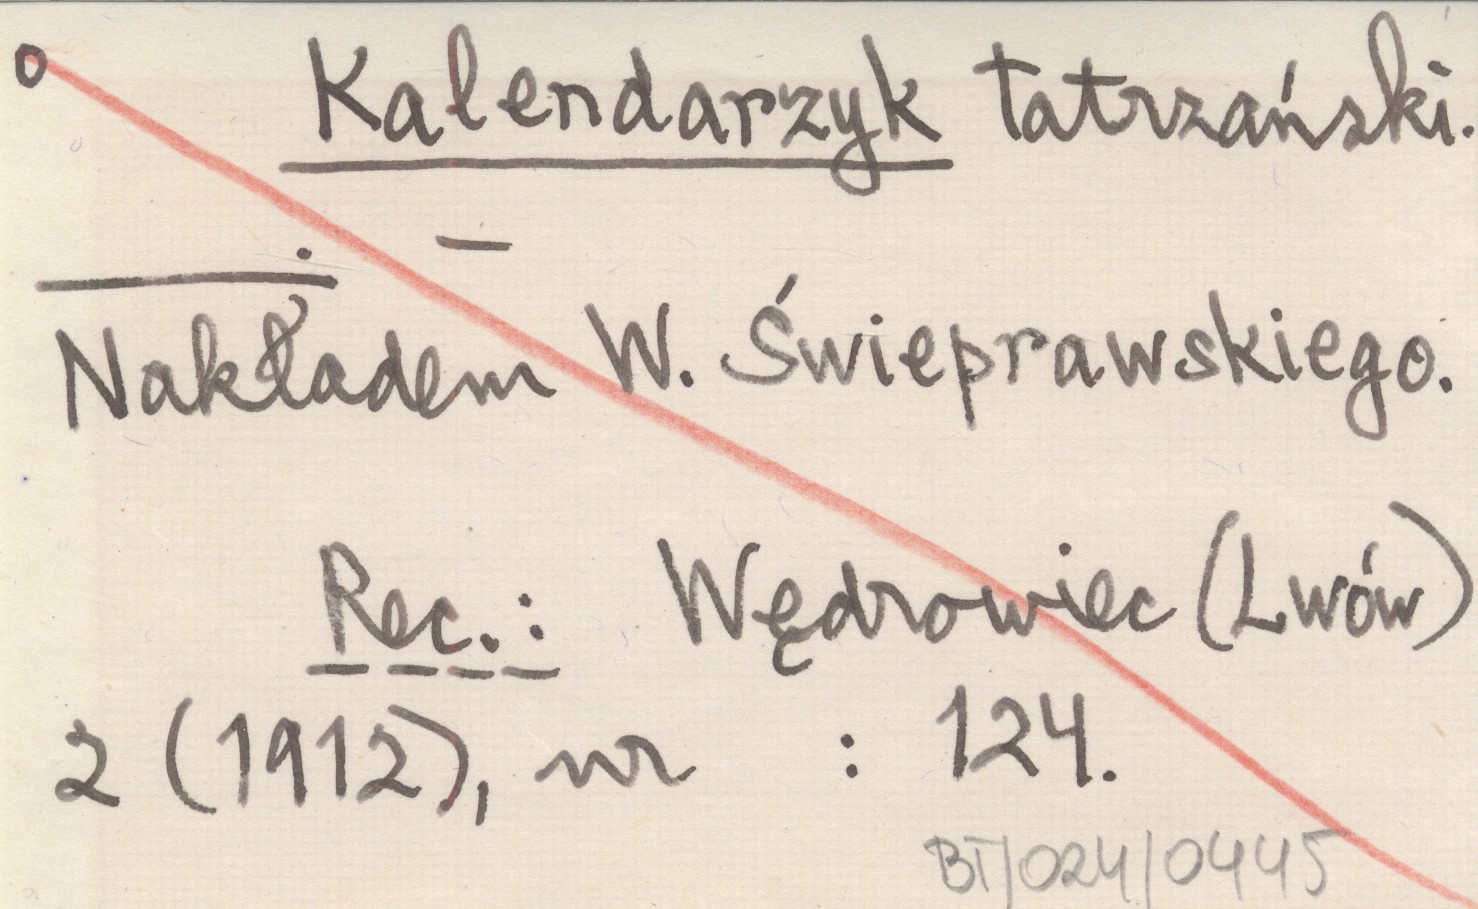 o Kalendarzyk tatrzański.
——. —
Nakładem W. Świeprawskiego.
Rec.: Wędrowiec (Lwów)
2 (1912), nr : 124.
BT/024/0445